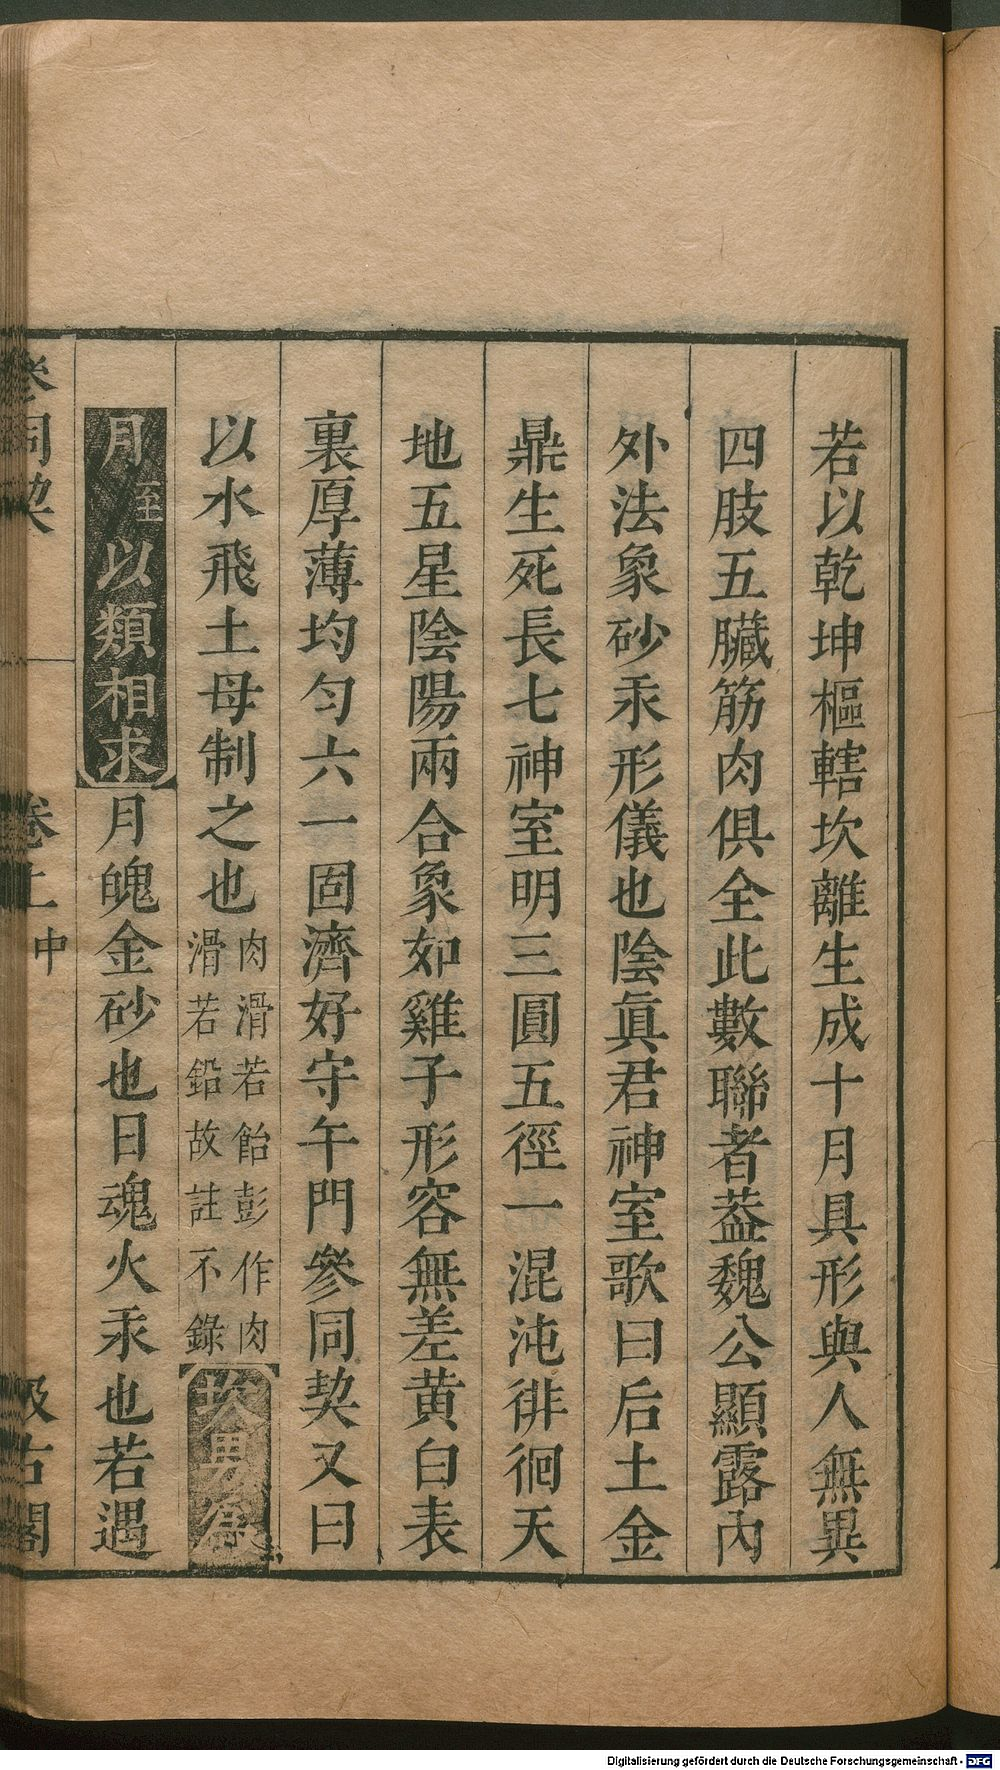 若以乾坤樞轄坎離生成十月具形與人無異
四肢五臟筋肉俱全此數聯者葢魏公顯露內
外法象砂汞形儀也陰眞君神室歌曰后土金
鼎生死長七神室明三圓五徑一混沌徘徊天
地五星陰陽兩合象如雞子形容無差黄白表
裏厚薄均勻六一固濟好守午門參同契又曰
以水飛土母制之也
肉滑若飴彭作肉
滑若鉛故註不錄
坎男爲
月
以類相求月魄金砂也日魂火汞也若遇
參同契
卷上中
汲古閣
Digitalisierung gefördert durch die Deutsche Forschungsgemeinschaft - DFG